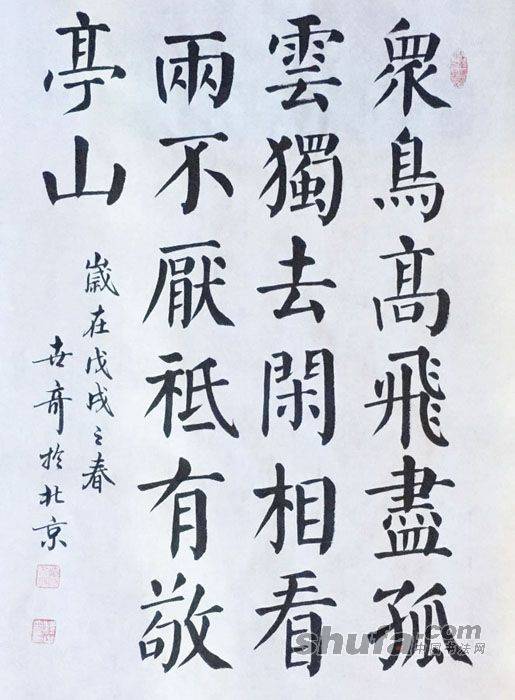 衆鳥髙飛盡孤
雲獨去閑相看
兩不厭祗有敬
亭山
歲在戊戌之春
世奇於北京
shufa.com
中国书法网